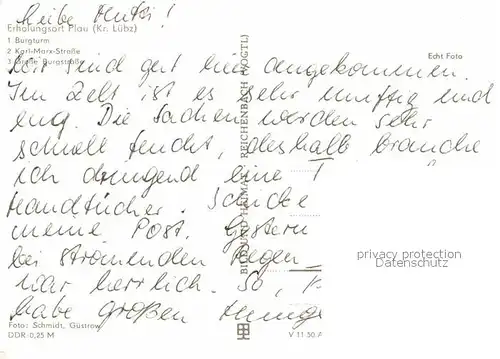 Liebe Mutti!
Erholungsort Plau (Kr. Lübz)
1 Burgturm
2 Karl-Marx-Straße
3 Große Burgstraße
Echt Foto
Wir sind gut hier angekommen.
Im Zelt ist es sehr zünftig und
eng. Die Sachen werden sehr
schnell feucht, deshalb brauche
ich dringend eine T
Handtücher. Schicke
meine Post. Gestern
bei strömenden Regen
war herrlich. So,
habe großen Hunge
BILD UND HEIMAT REICHENBACH (VOGTL)
privacy protection
Datenschutz
Foto: Schmidt, Güstrow
DDR 0,25 M
V 11 50 A